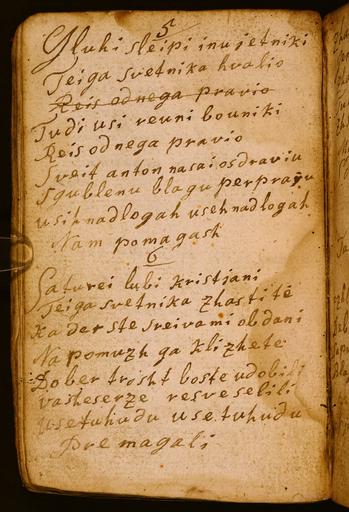 5
Gluhi sleipi inu jetniki
Teiga svetnika hvalio
Reis odnega pravio
Tudi usi reuni bouniki
Reis odnega pravio
Sveit anton nasai osdraviu
Sgublenu blagu perpraviu
usih nadlogah useh nadlogah
Nam pomagash
6
Saturei lubi Kristjani
Teiga svetnika zhastite
Kader ste sreivami obdani
Na pomuzh ga klizhete
Dober trosht boste udobili
vasheserze resveselili
usetuhudu usetuhudu
Premagali